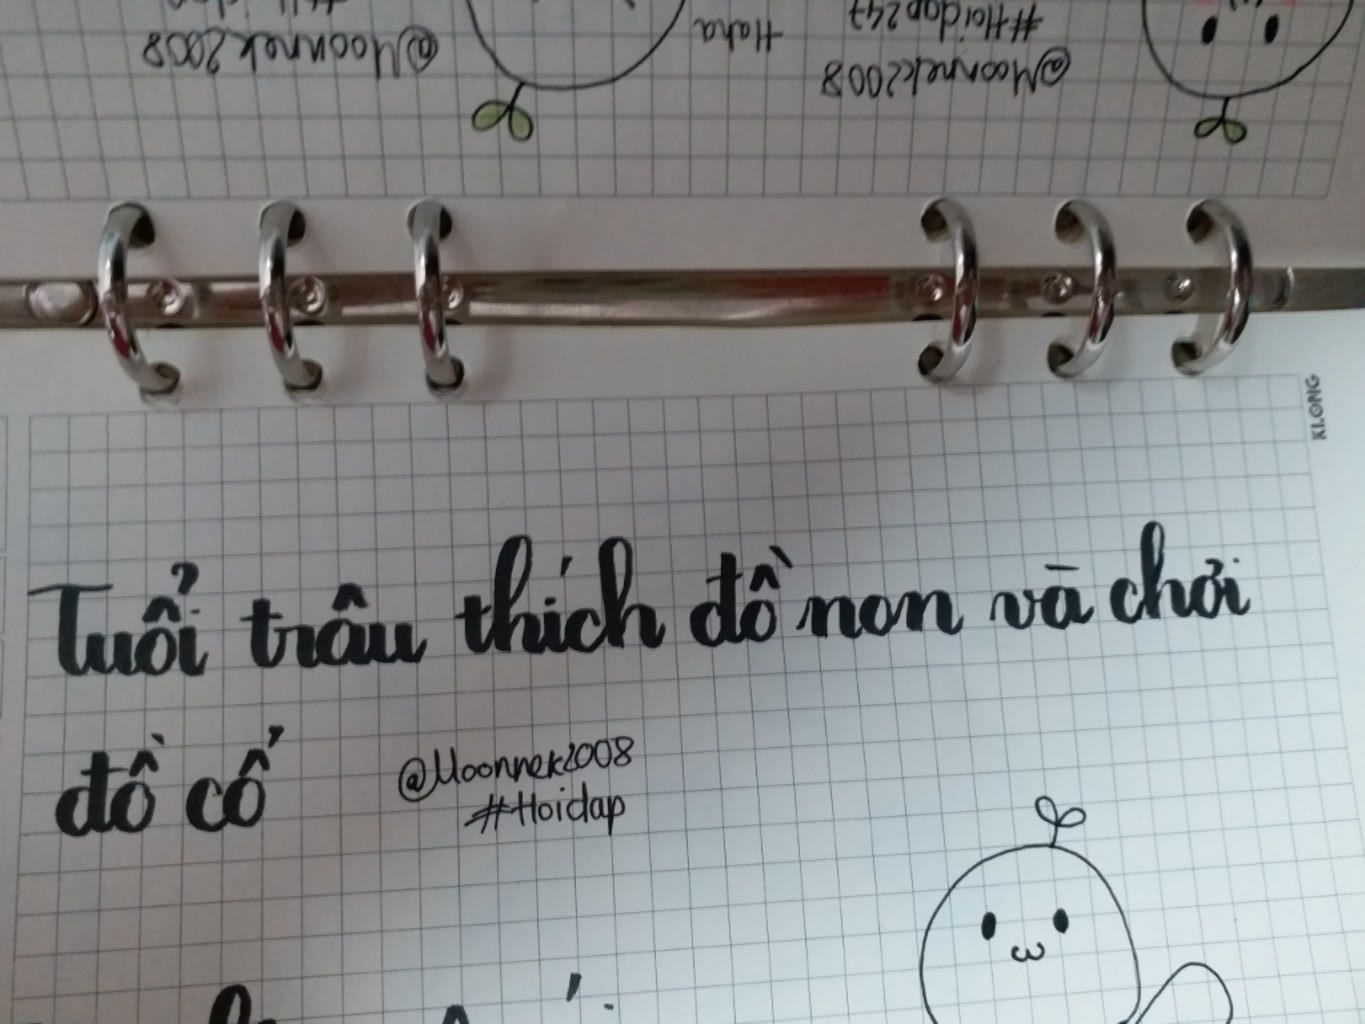 @Moonnek2008
Haha
#Hoidap247
@Moonnek2008
KLONG
Tuổi trâu thích đồ non và chơi
đồ cổ
@Moonnek2008
#Hoidap